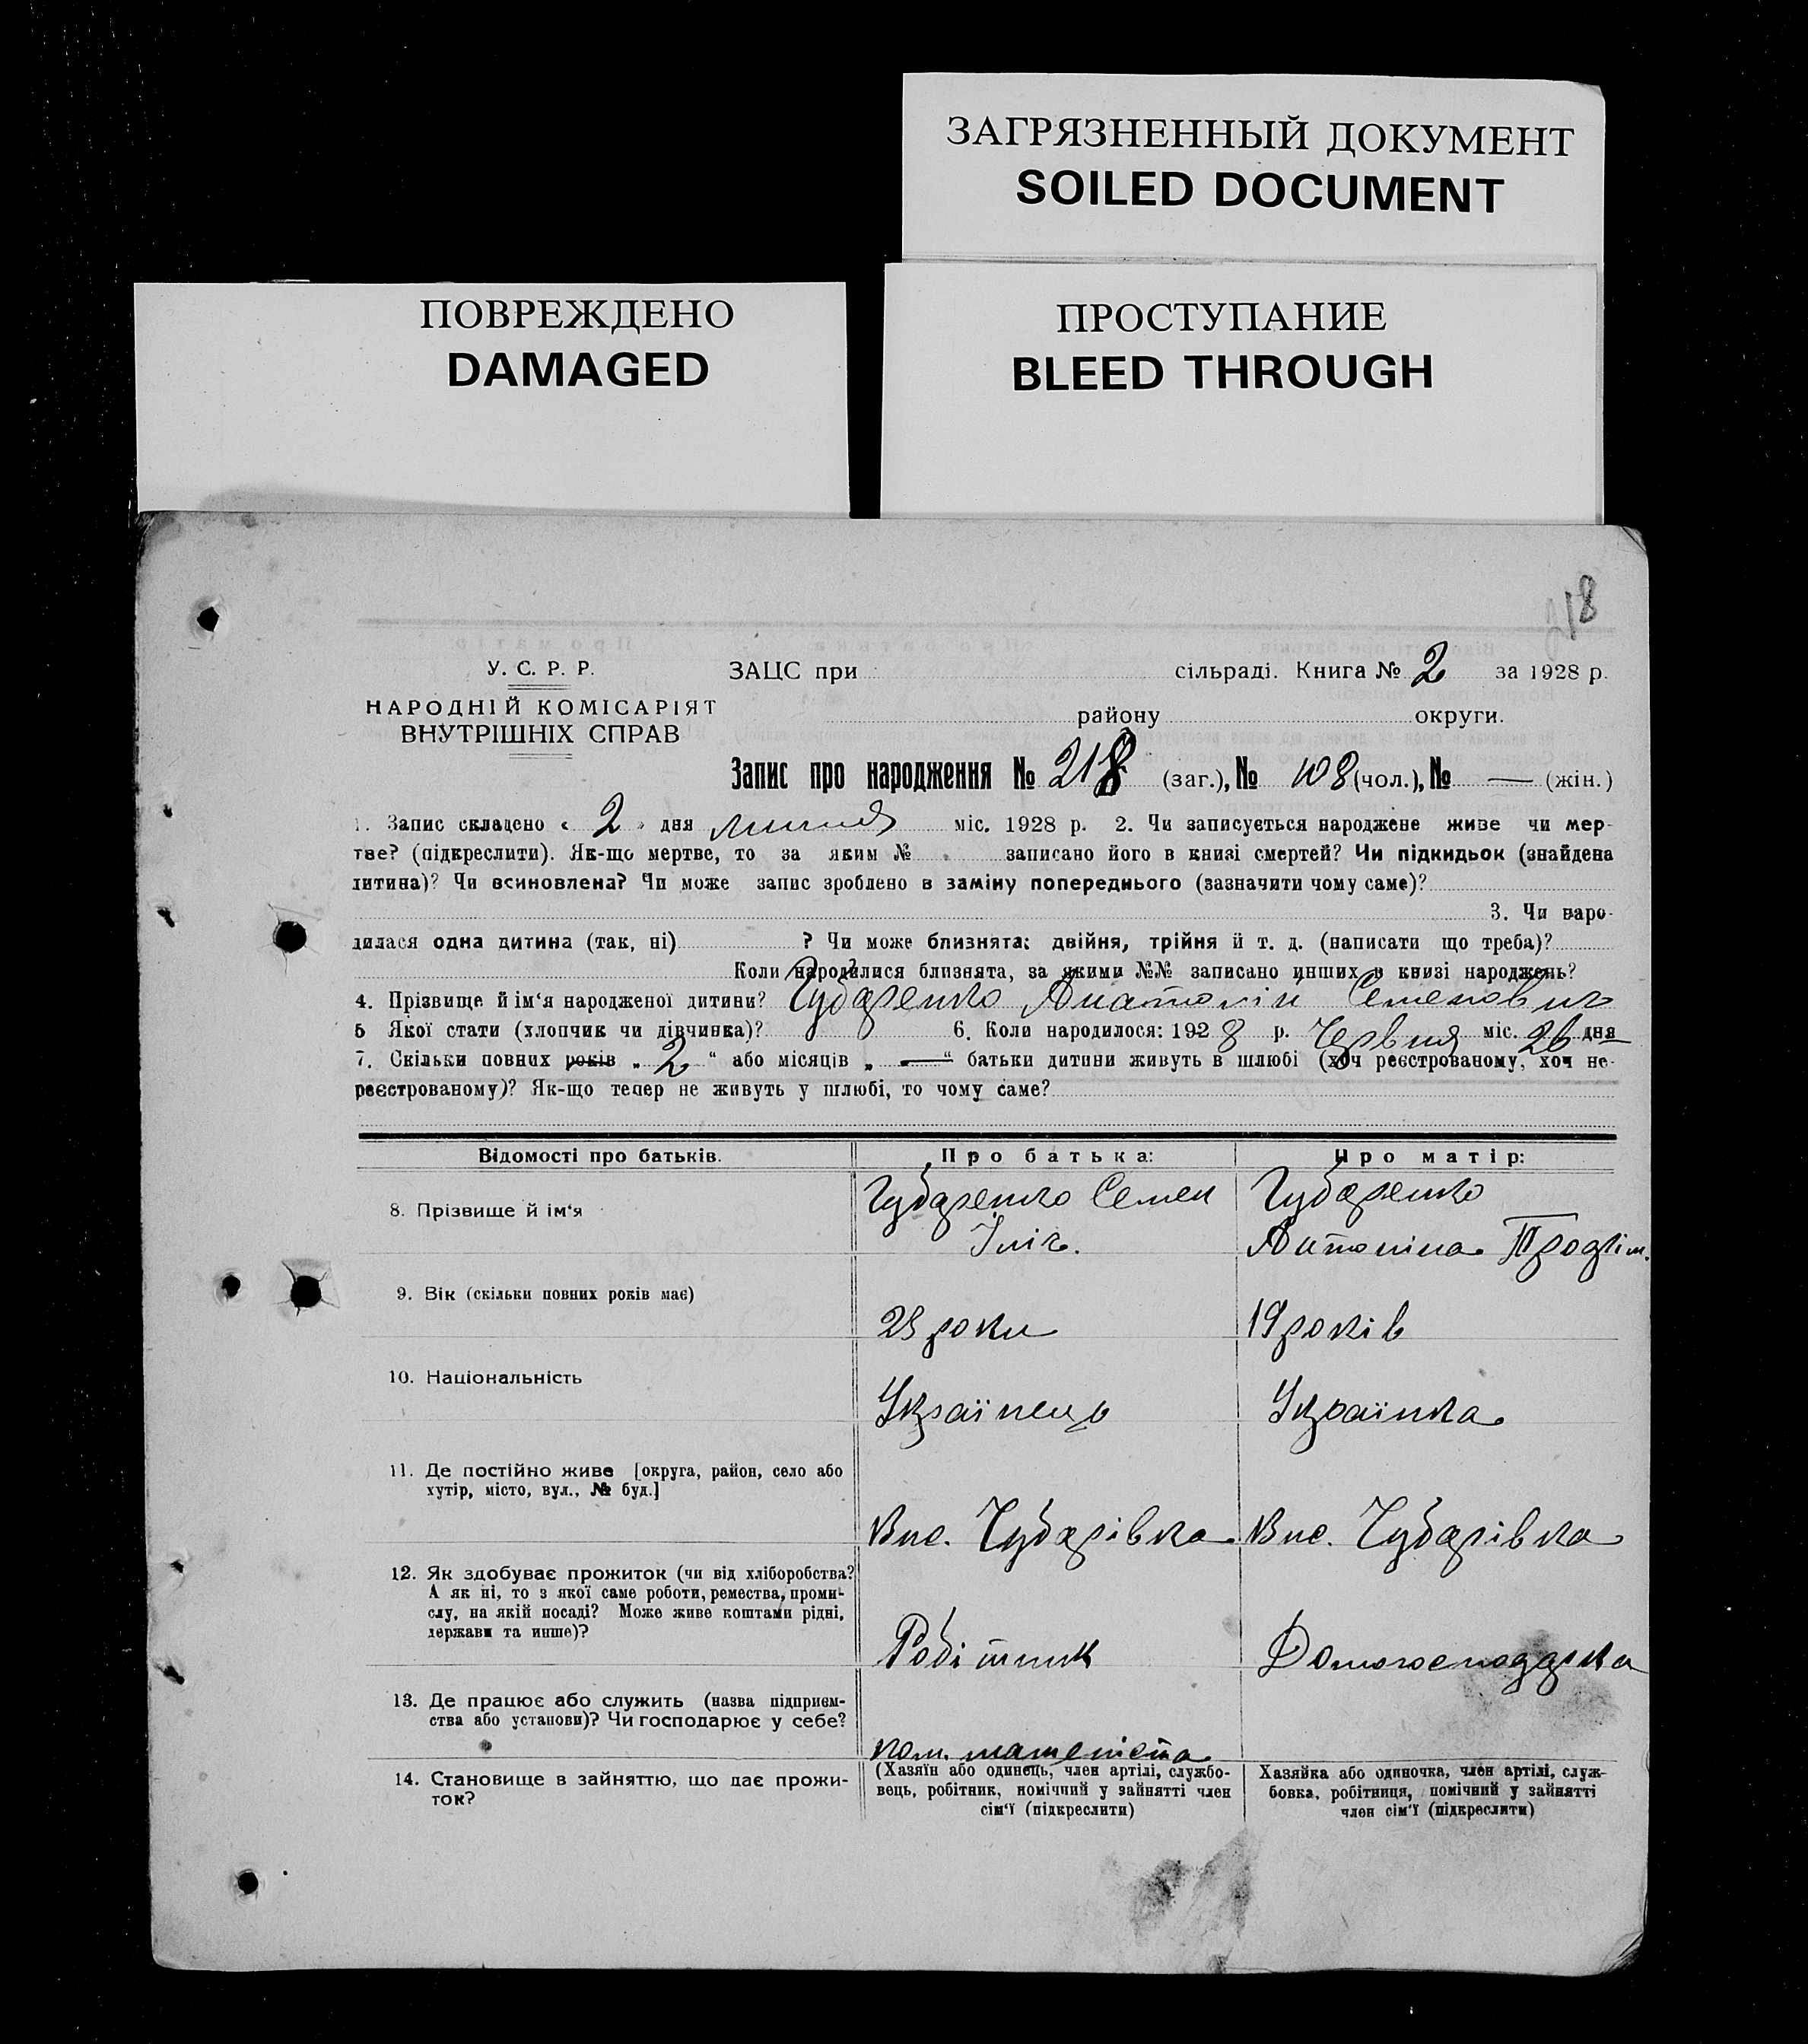 ЗАГРЯЗНЕННЫЙ ДОКУМЕНТ
SOILED DOCUMENT
ПОВРЕЖДЕНО
DAMAGED
ПРОСТУПАНИЕ
BLEED THROUGH
218
У. С. Р. Р.
НАРОДНІЙ КОМІСАРІЯТ
ВНУТРІШНІХ СПРАВ
ЗАЦС при сільраді. Книга № 2 за 1928 р.
району округи.
Запис про народження № 218 (заг.), № 108 (чол.), № — (жін.)
1. Запис складено « 2 » дня липня міс. 1928 р. 2. Чи записується народжене живе чи мер-
тве? (підкреслити). Як-що мертве, то за яким № записано його в книзі смертей? Чи підкидьок (знайдена
дитина)? Чи всиновлена? Чи може запис зроблено в заміну попереднього (зазначити чому саме)?
3. Чи наро-
дилася одна дитина (так, ні) ? Чи може близнята: двійня, трійня й т. д. (написати що треба)?
Коли народилися близнята, за якими №№ записано инших в книзі народжень?
4. Прізвище й ім‘я народженої дитини? Чубаренко Анатолій Семенович
5 Якої стати (хлопчик чи дівчинка)? 6. Коли народилося: 1928 р. Червня міс. 26 дня
7. Скільки повних років „ 2 “ або місяців „ — “ батьки дитини живуть в шлюбі (хоч реєстрованому, хоч не-
реєстрованому)? Як-що тепер не живуть у шлюбі, то чому саме?
Відомості про батьків. Про батька: Про матір:
8. Прізвище й ім‘я Чубаренко Семен Чубаренко
Ілік. Антоніна
9. Вік (скільки повних років має)
23 роки 19 років
10. Національність
Українець Українка
11. Де постійно живе [округа, район, село або
хутір, місто, вул., № буд.]
Чубарівка Чубарівка
12. Як здобуває прожиток (чи від хліборобства?
А як ні, то з якої саме роботи, ремества, проми-
слу, на якій посаді? Може живе коштами рідні,
держави та инше)?
Робітник Домогосподарка
13. Де працює або служить (назва підприєм-
ства або установи)? Чи господарює у себе?
пом. машеніста
14. Становище в зайняттю, що дає прожи-
ток?
(Хазяїн або одинець, член артілі, службо-
вець, робітник, помічний у зайнятті член
сім‘ї (підкреслити)
Хазяйка або одиночка, член артілі, служ-
бовка, робітниця, помічний у зайнятті
член сім‘ї (підкреслити)